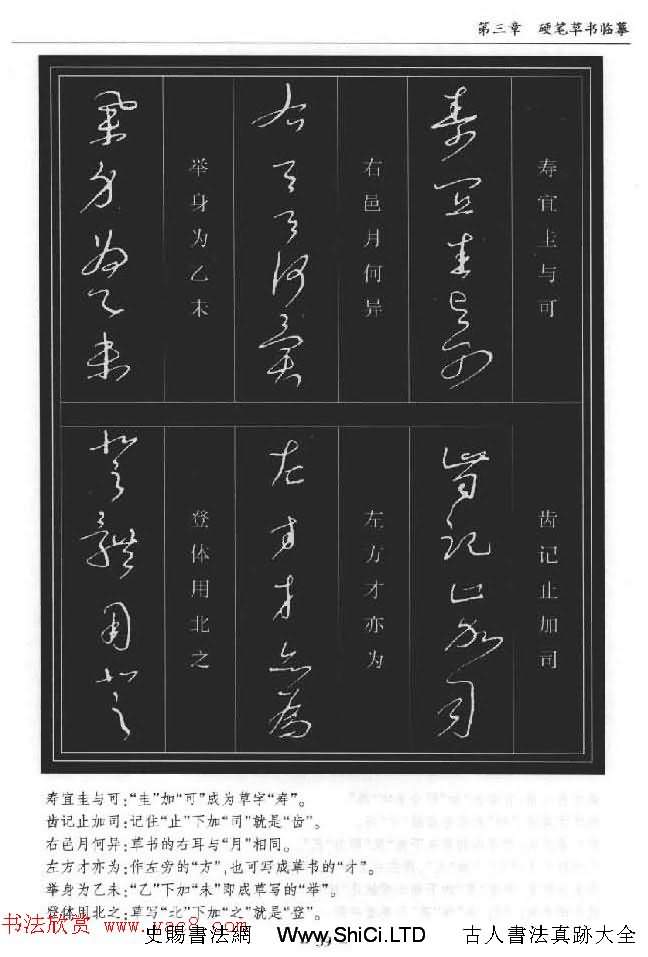 第三章 硬笔草书临摹
寿宜圭与可
齿记止加司
右邑月何异
左方才亦为
举身为乙未
登体用北之
寿宜圭与可:“圭”加“可”成为草字“寿”。
齿记止加司:记住“止”下加“司”就是“齿”。
右邑月何异:草书的右耳与“月”相同。
左方才亦为:作左旁的“方”,也可写成草书的“才”。
举身为乙未:“乙”下加“未”即成草写的“举”。
登体用北之:草写“北”下加“之”就是“登”。
书法欣赏 www.yac8.com
史賜書法網 Www.ShiCi.LTD 古人書法真跡大全